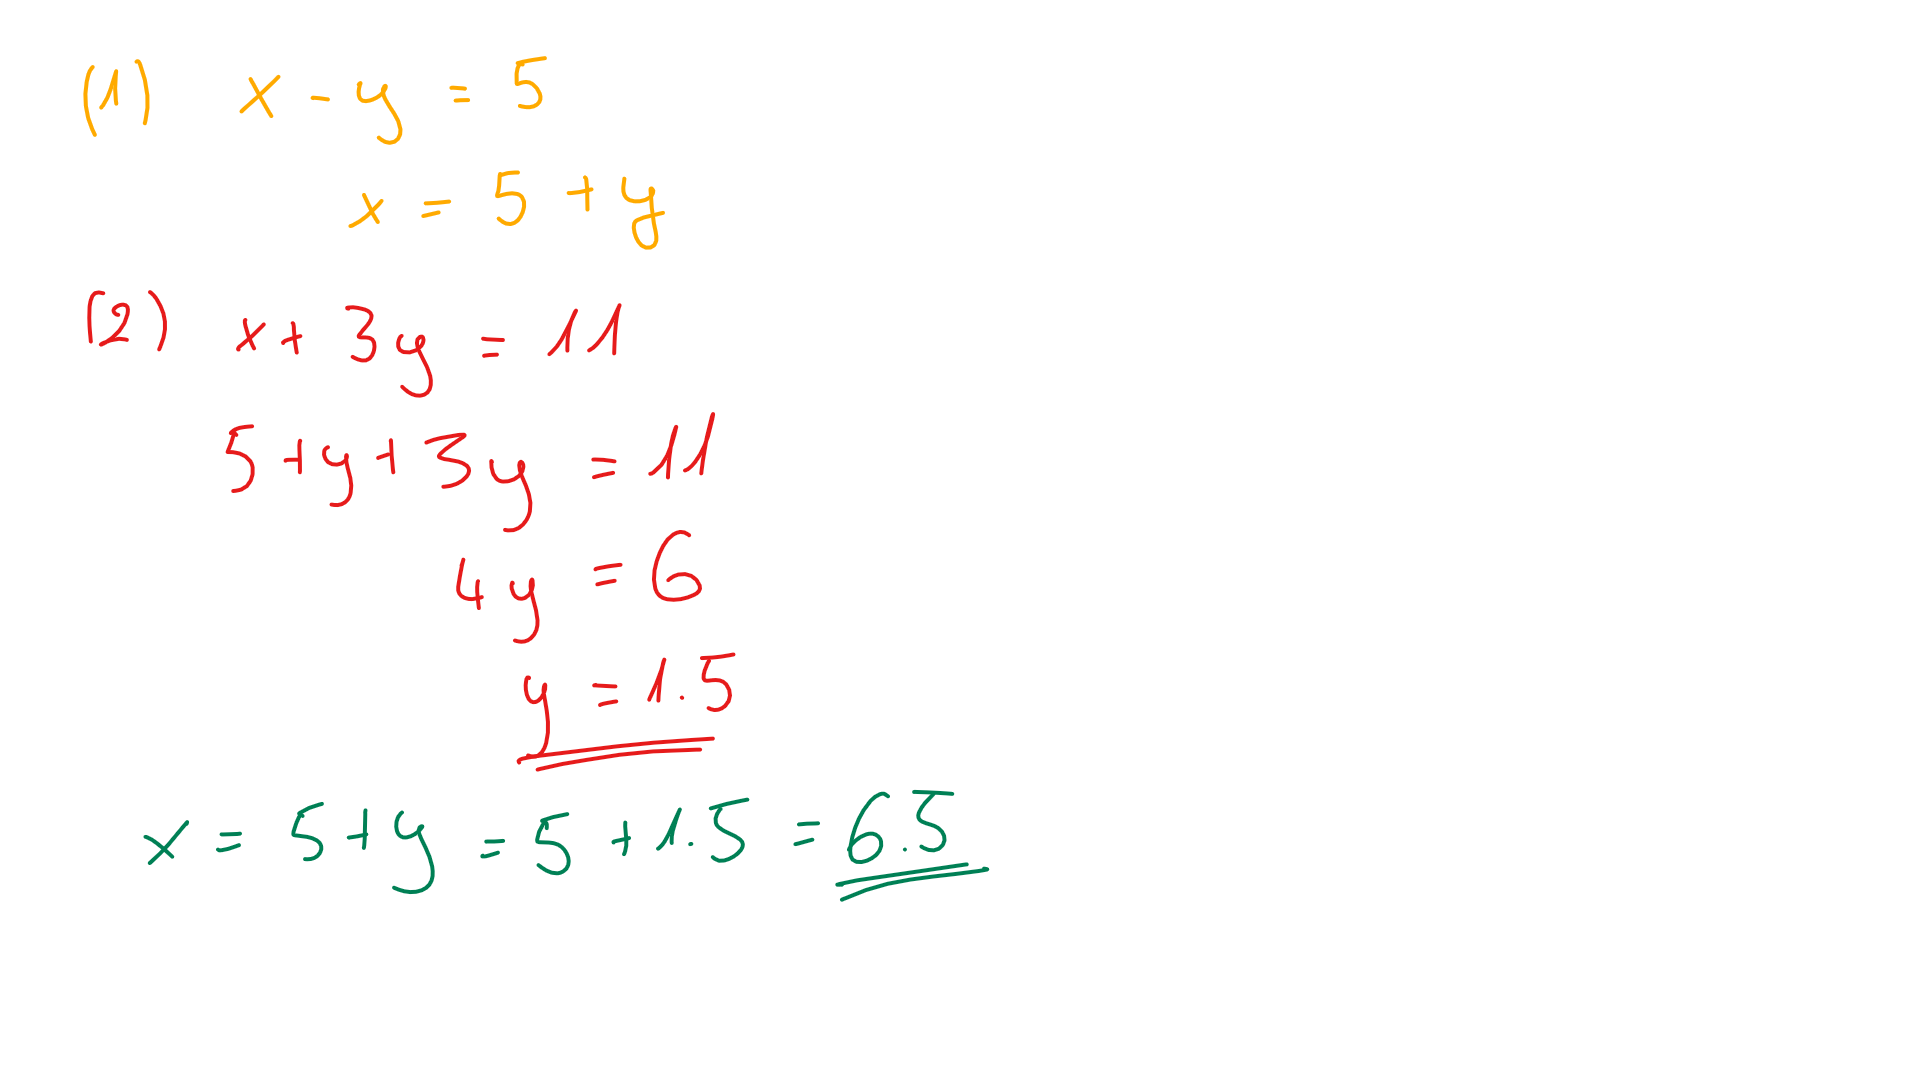 (1) x - y = 5
x = 5 + y
(2) x + 3y = 11
5 + y + 3y = 11
4y = 6
y = 1.5
x = 5 + y = 5 + 1.5 = 6.5